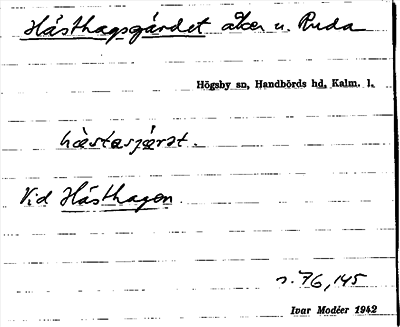 Hästhagsgärdet åker u. Ruda
Högsby sn, Handbörds hd, Kalm. l.
hàstasjárst.
Vid Hästhagen.
s. 76, 145
Ivar Modéer 1942